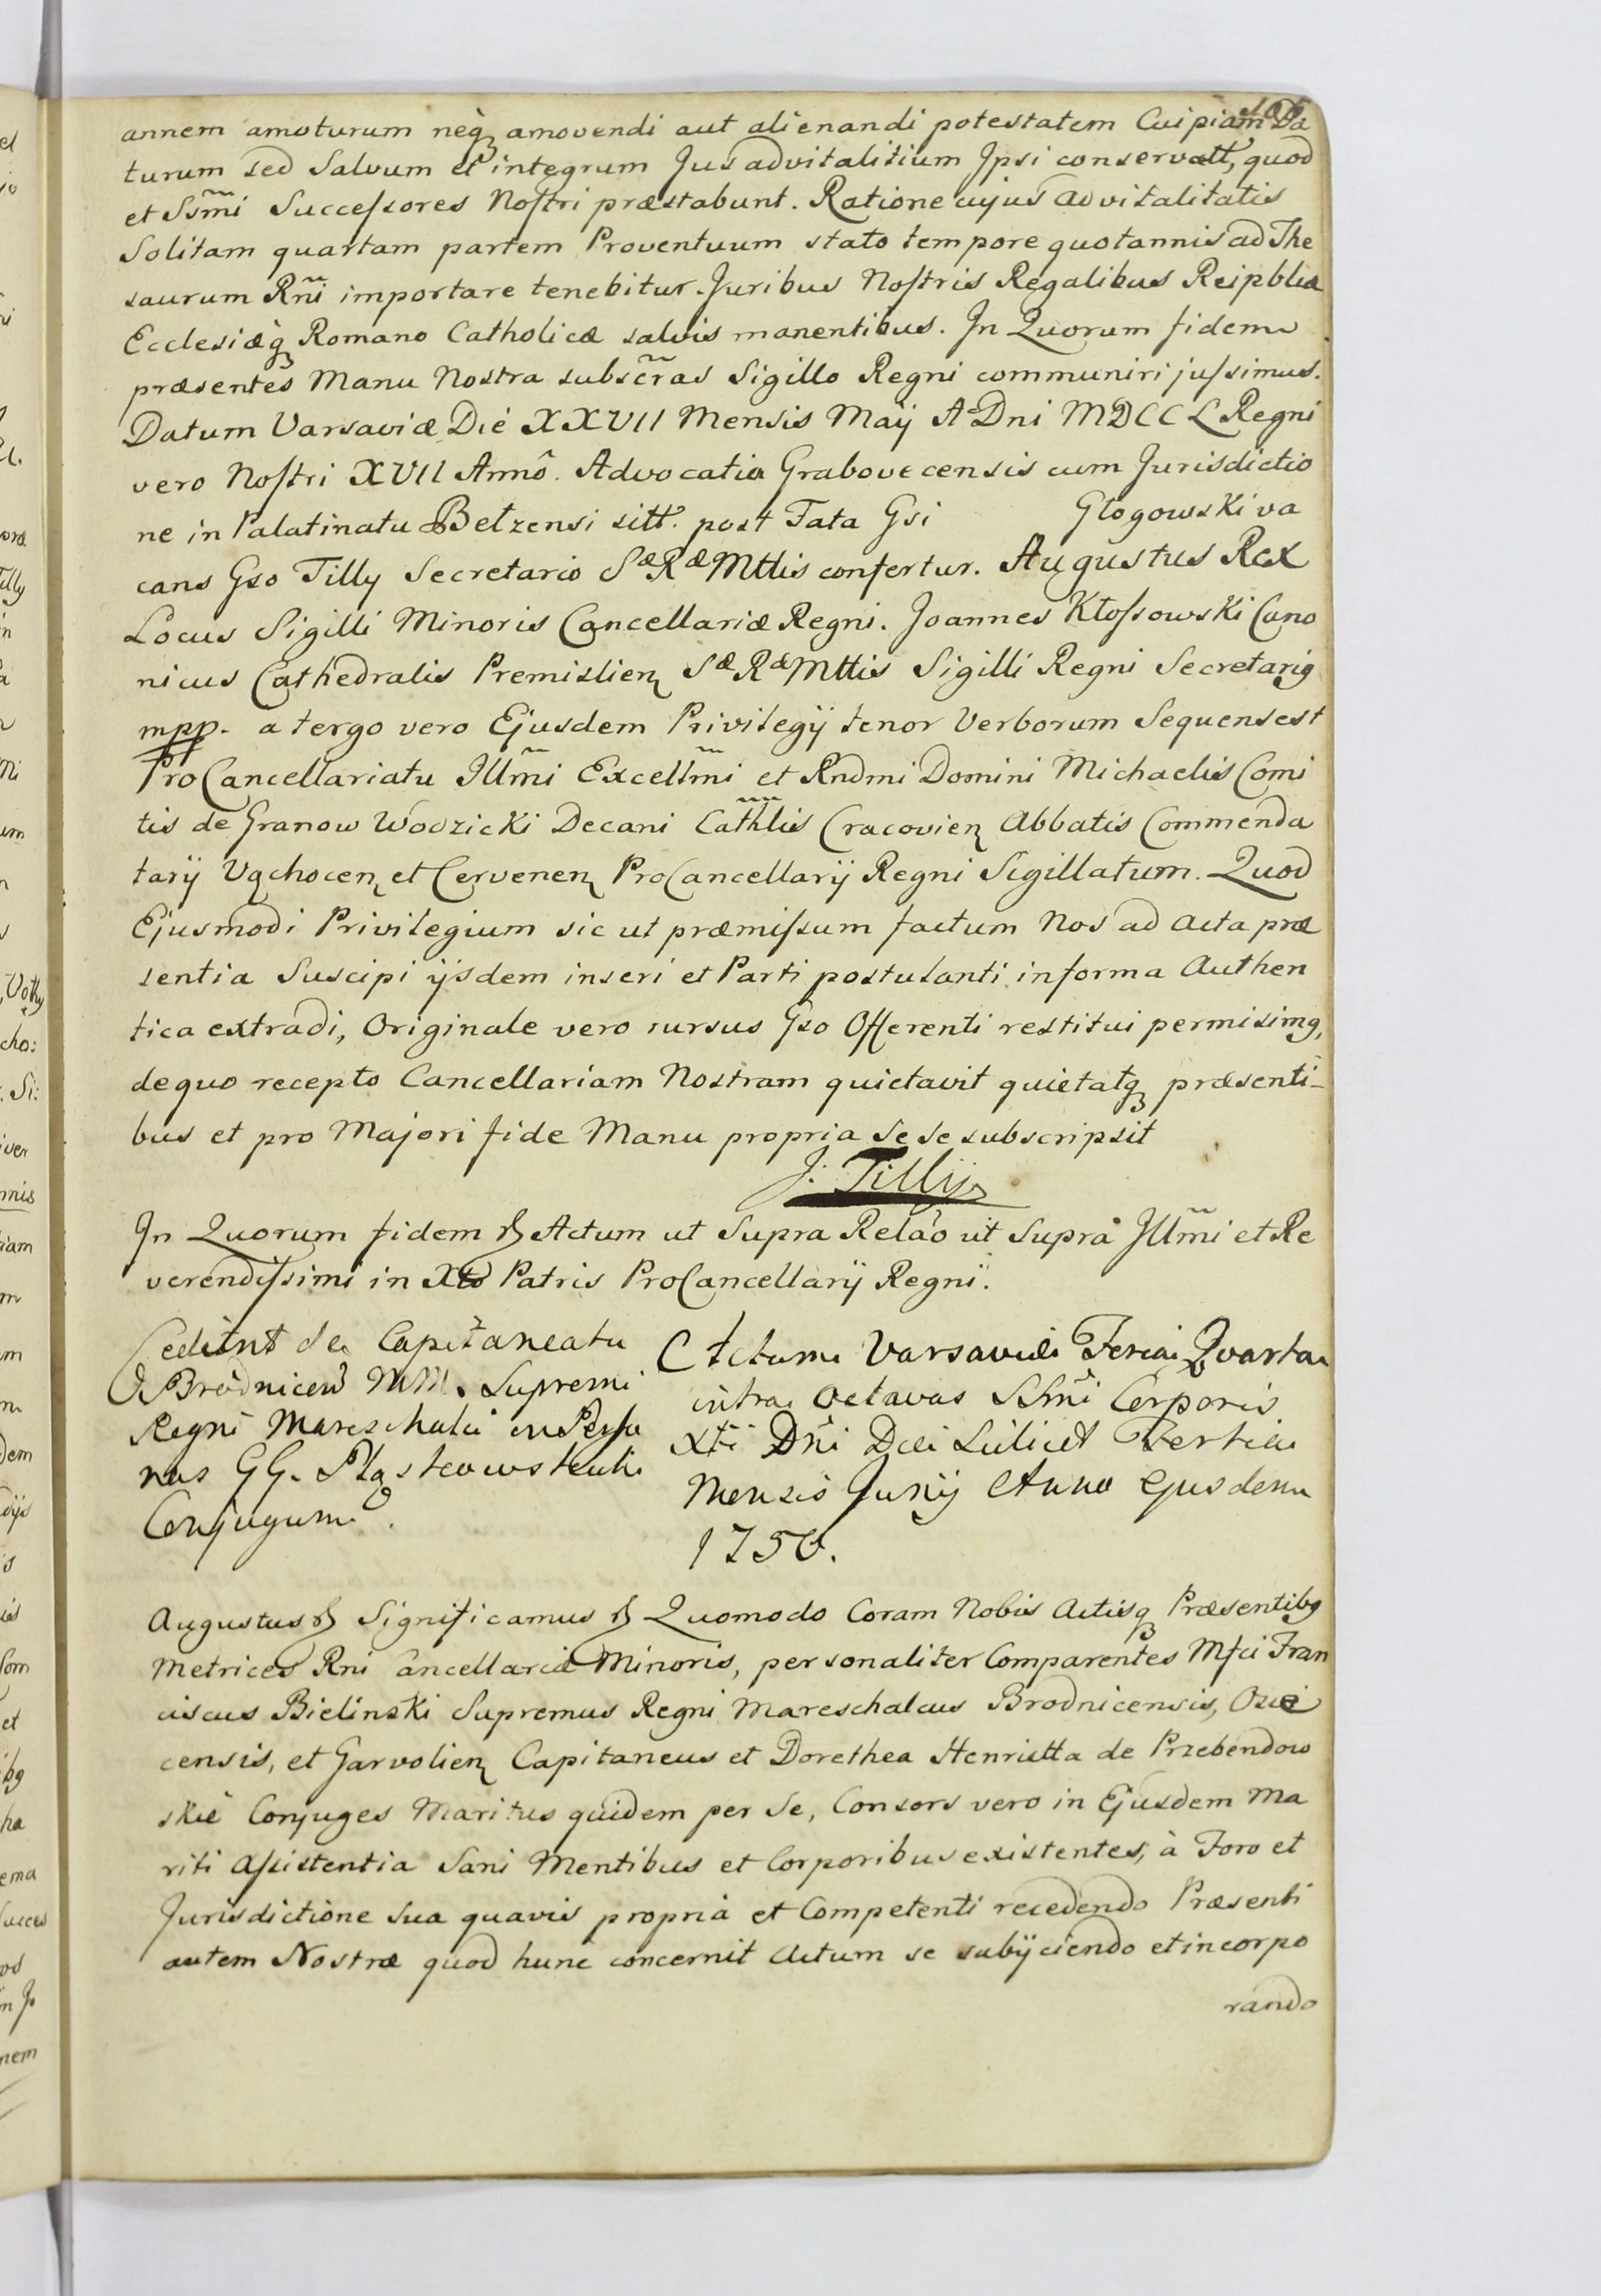 annem amoturum neq₃ amovendi aut alienandi potestatem Cuipiam Da
turum sed Salvum et integrum Jus advitalitium Ipsi conservatt, quod
et Ssm̃i Succeſsores Noſtri præstabunt. Ratione cujus advitalitatis
Solitam quartam partem Proventuum stato tempore quotannis ad The
saurum Rñi importare tenebitur. Juribus Noſtris Regalibus Reipblicæ
Ecclesiæq₃ Romano Catholicæ salvis manentibus. In Quorum fidem
præsentes Manu Nostra subscr̃as Sigillo Regni communiri juſsimus.
Datum Varsaviæ Die XXVII Mensis Maij Aº Dni MDCCL Regni
vero Noſtri XVII Annô. Advocatia Grabovecensis cum Jurisdictio
ne in Palatinatu Belzensi sitt. post Fata Gsi Glogowski va
cans Gso Tilly Secretario Sæ Ræ Mttis confertur. Augustus Rex
Locus Sigilli Minoris Cancellariæ Regni. Joannes Kłoſsowski Cano
nicus Cathedralis Premislien Sæ Ræ Mttis Sigilli Regni Secretari9
mpp. a tergo vero Ejusdem Privilegij tenor Verborum Sequens est
ProCancellariatu Illm̃i Excellm̃i et Rndmi Domini Michaelis Comi
tis de Granow Wodzicki Decani Cath̃lis Cracovien Abbatis Commenda
tarij Vachocen et Cervenen ProCancellarij Regni Sigillatum. Quod
Ejusmodi Privilegium sic ut præmiſsum factum Nos ad Acta præ
sentia Suscipi ijsdem inseri et Parti postulanti in forma Authen
tica extradi, Originale vero rursus Gso Offerenti restitui permisim9,
de quo recepto Cancellariam Nostram quietavit quietatq₃ præsenti-
bus et pro Majori fide Manu propria se se subscripsit
J. Tilly
In Quorum fidem &c Actum ut Supra Relao ut Supra Illm̃i et Re
verendiſsimi in Xto Patris ProCancellarij Regni.
Cedunt de Capitaneatu
Brodnicen MM. Supremi
Regni Mareschalci in Perso
nas GG. Pląskowskich
Conjugum.
Actum Varsaviæ Feria Quarta
intra Octavas Ssm̃i Corporis
Xti Dñi Die Scilicet Tertia
Mensis Junij Anno Ejusdem
1750.
Augustus &c Significamus &c Quomodo Coram Nobis Actisq₃ Præsentib9
Metrices Rni Cancellariæ Minoris, personaliter Comparentes Mfci Fran
ciscus Bielinski Supremus Regni Mareschalcus Brodnicensis, Osie
censis, et Garvolien Capitaneus et Dorethea Henrietta de Przebendow
skie Conjuges Maritus quidem per Se, Consors vero in Ejusdem Ma
riti Aſsistentia Sani Mentibus et Corporibus existentes, à Foro et
Jurisdictione Sua quavis propriâ et Competenti recedendo Præsenti
autem Nostræ quod hunc concernit Actum se subijciendo et incorpo
rando